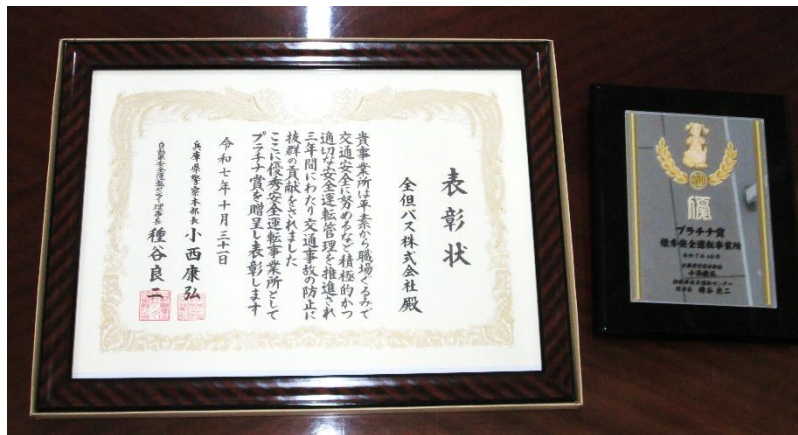 表彰状
全但バス株式会社 殿
貴事業所は平素から職場ぐるみで
交通安全に努めるなど積極的かつ
適切な安全運転管理を推進され
三年間にわたり交通事故の防止に
抜群の貢献をされました
ここに優秀安全運転事業所として
プラチナ賞を贈呈し表彰します
令和七年十月三十一日
兵庫県警察本部長 小西康弘
自動車安全運転センター理事長 種谷良二
優
プラチナ賞
優秀安全運転事業所
令和7年10月
兵庫県警察本部長
小西康弘
自動車安全運転センター
理事長 種谷良二